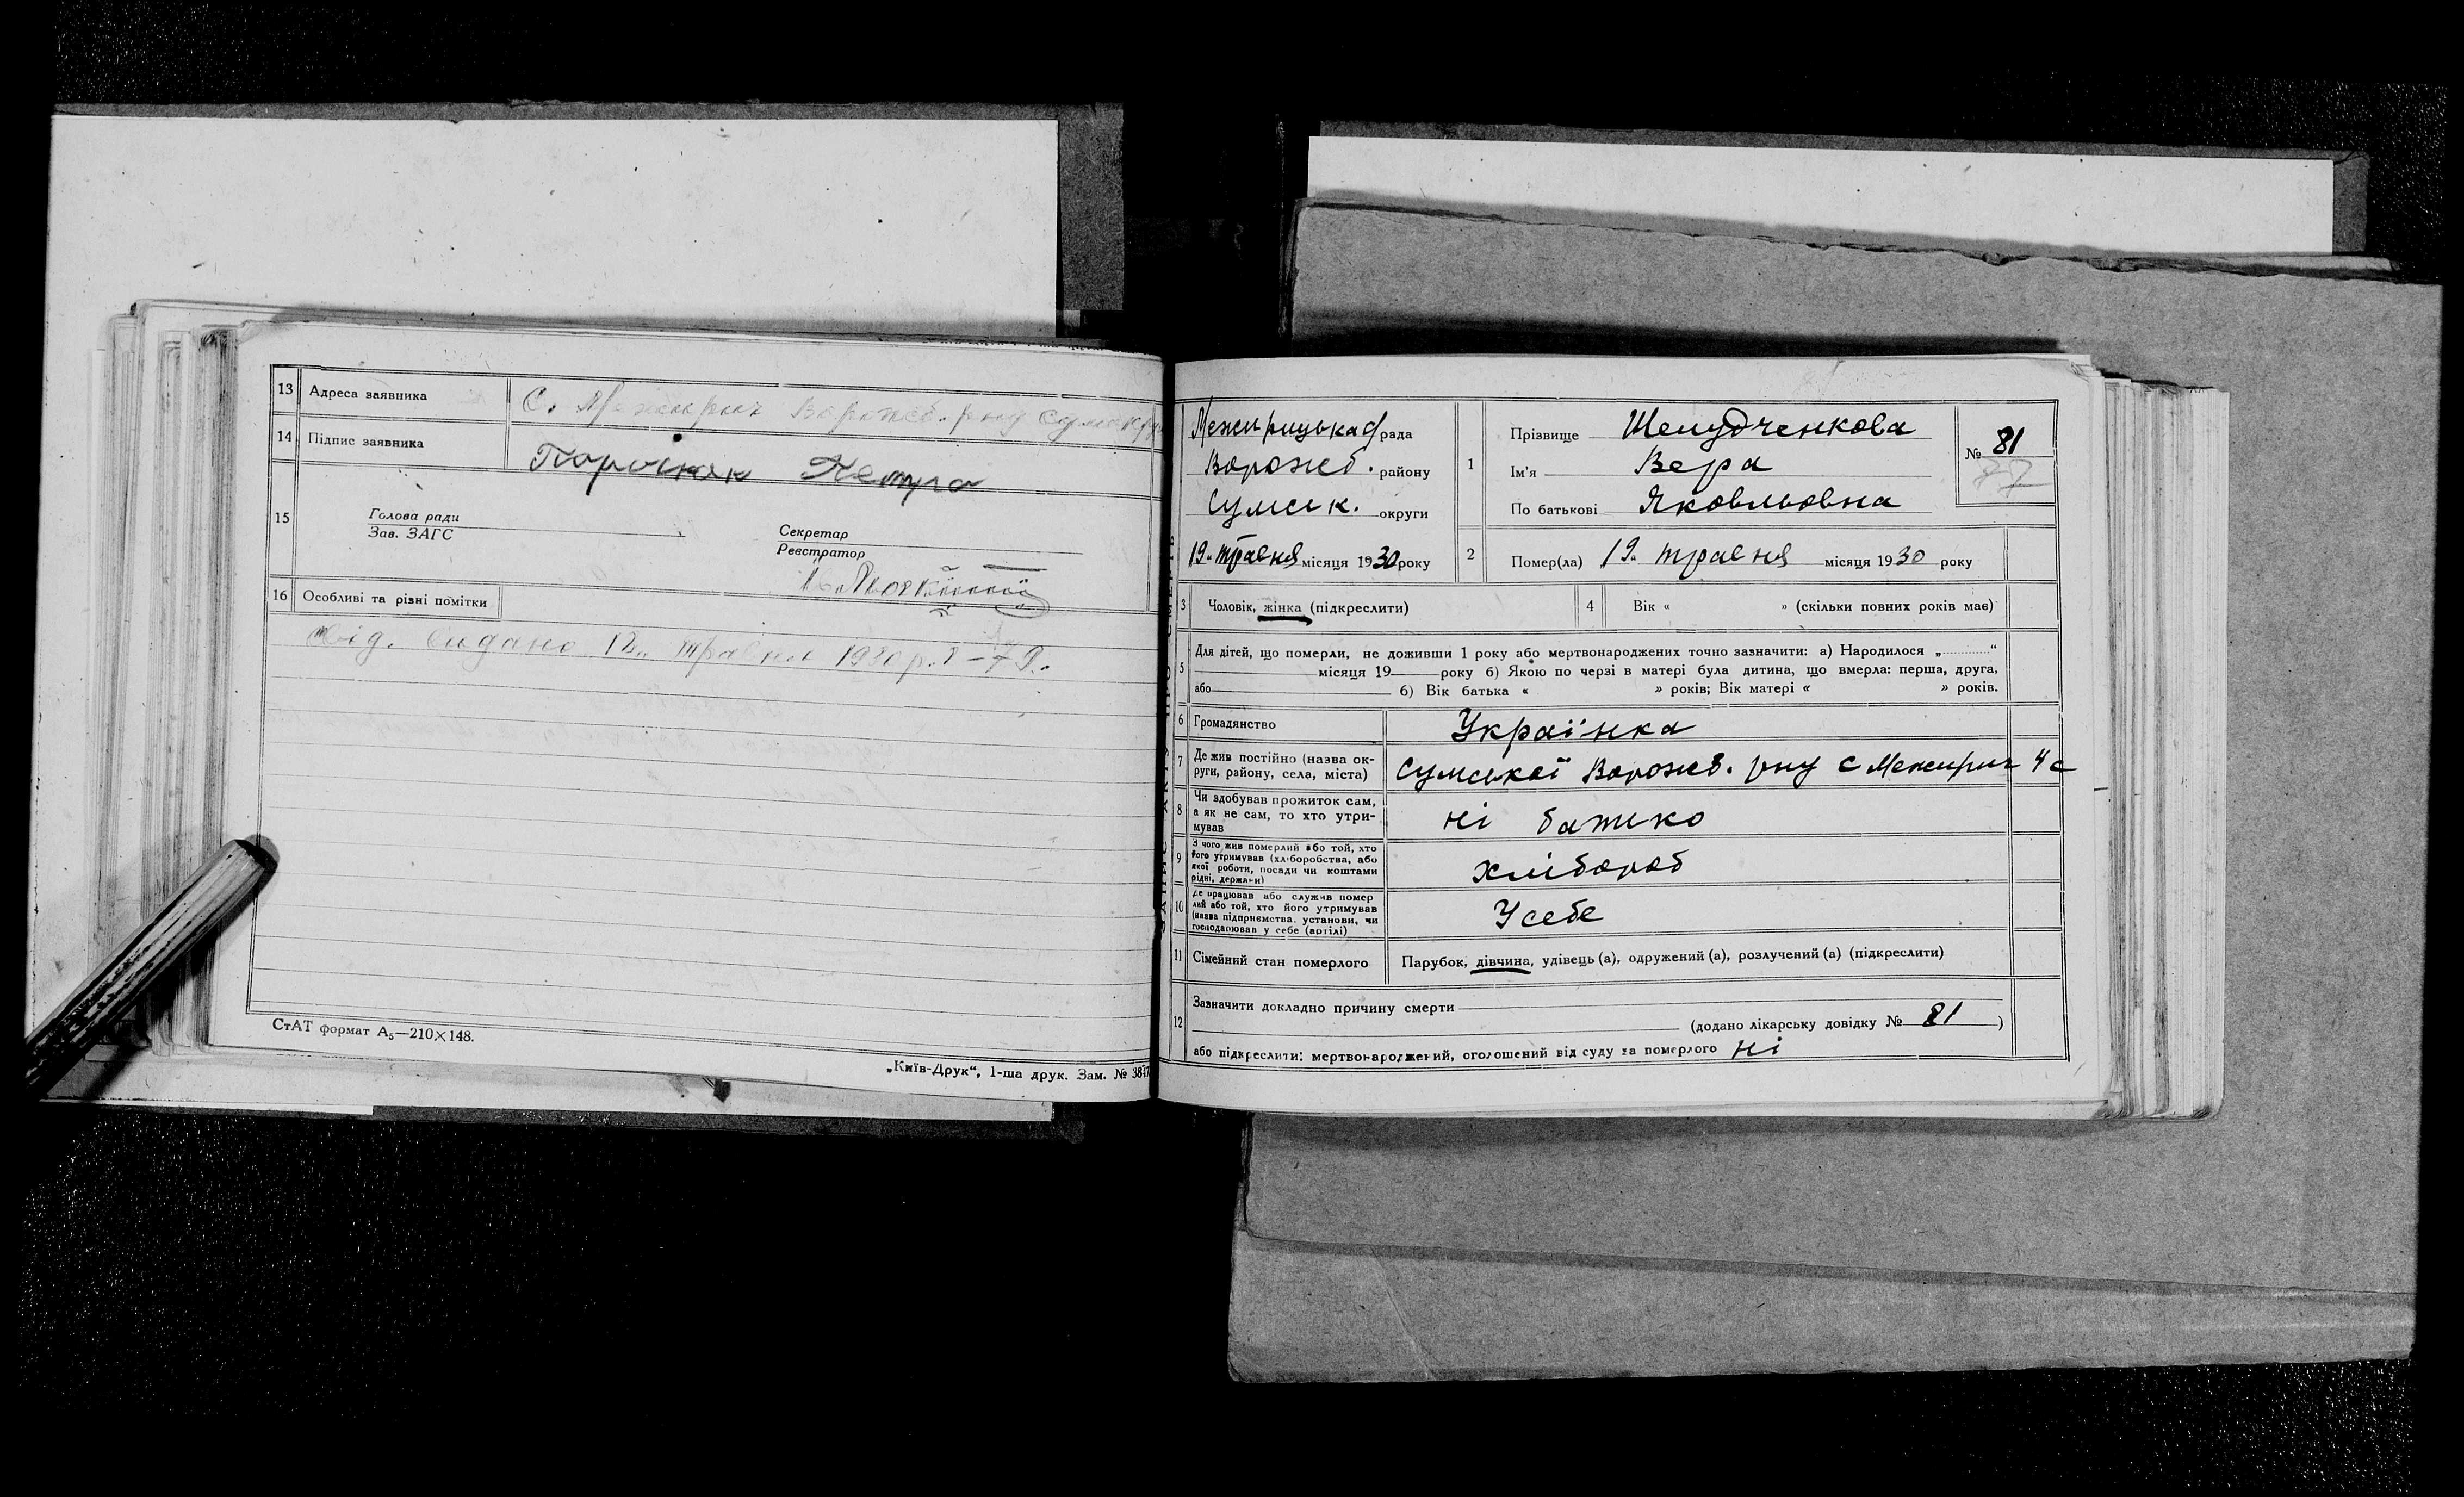 13 Адреса заявника С. Межирич Ворожб. рну Сумок
14 Підпис заявника Петро
15 Голова ради
Зав. ЗАГС
Секретар
Реєстратор
16 Особливі та різні помітки
Від. видано 12„ травня 1930 р.
СтАТ формат А₅—210×148.
„Київ-Друк“, 1-ша друк. Зам. №
Межирицька рада
Ворожб. району
Сумськ. округи
19„ травня місяця 1930 року
1 Прізвище Шепудченкова
Ім'я Вера
По батькові Яковльовна
№ 81
77
2 Помер(ла) 19„ травня місяця 1930 року
3 Чоловік, жінка (підкреслити)
4 Вік « » (скільки повних років мав)
5 Для дітей, що померли, не доживши 1 року або мертвонароджених точно зазначити: а) Народилося „............“
місяця 19 року б) Якою по черзі в матері була дитина, що вмерла: перша, друга,
або б) Вік батька « » років; Вік матері « » років.
6 Громадянство Українка
7 Де жив постійно (назва ок-
руги, району, села, міста) Сумської Ворожб. рну с Межирич 4 с
8 Чи здобував прожиток сам,
а як не сам, то хто утри-
мував ні батько
9 З чого жив померлий або той, хто
його утримував (хліборобства, або
якої роботи, посади чи коштами
рідні, держави) Хлібороб
10 Де працював або служив помер
лий або той, хто його утримував
(назва підприємства, установи, чи
господарював у себе (артілі) У себе
11 Сімейний стан померлого Парубок, дівчина, удівець (а), одружений (а), розлучений (а) (підкреслити)
12 Зазначити докладно причину смерти
(додано лікарську довідку № 81 )
або підкреслити: мертвонароджений, оголошений від суду за померлого ні